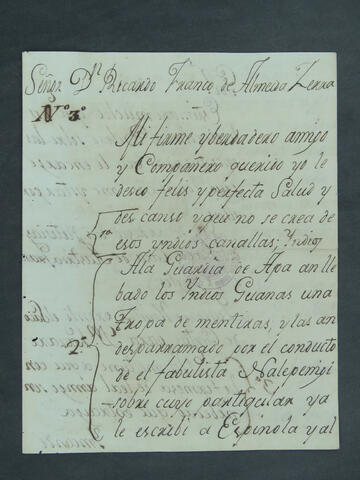 Señor Dn Ricardo Franco de Almeida Zerra
No 3o
Mi firme y berdadero amigo
y Compañero querido yo le
deseo felis y perfecta Salud y
descanso y que no se crea de
1o
esos yndios canallas; Yndios
Ala Guardia de Apa an lle
bado los Yndios Guanas una
Tropa de mentiras, y las an
2o
desparramado por el conduito
de el fabulista Nalepemyi
sobre cuyo particular ya
le escribi a Espinola y al